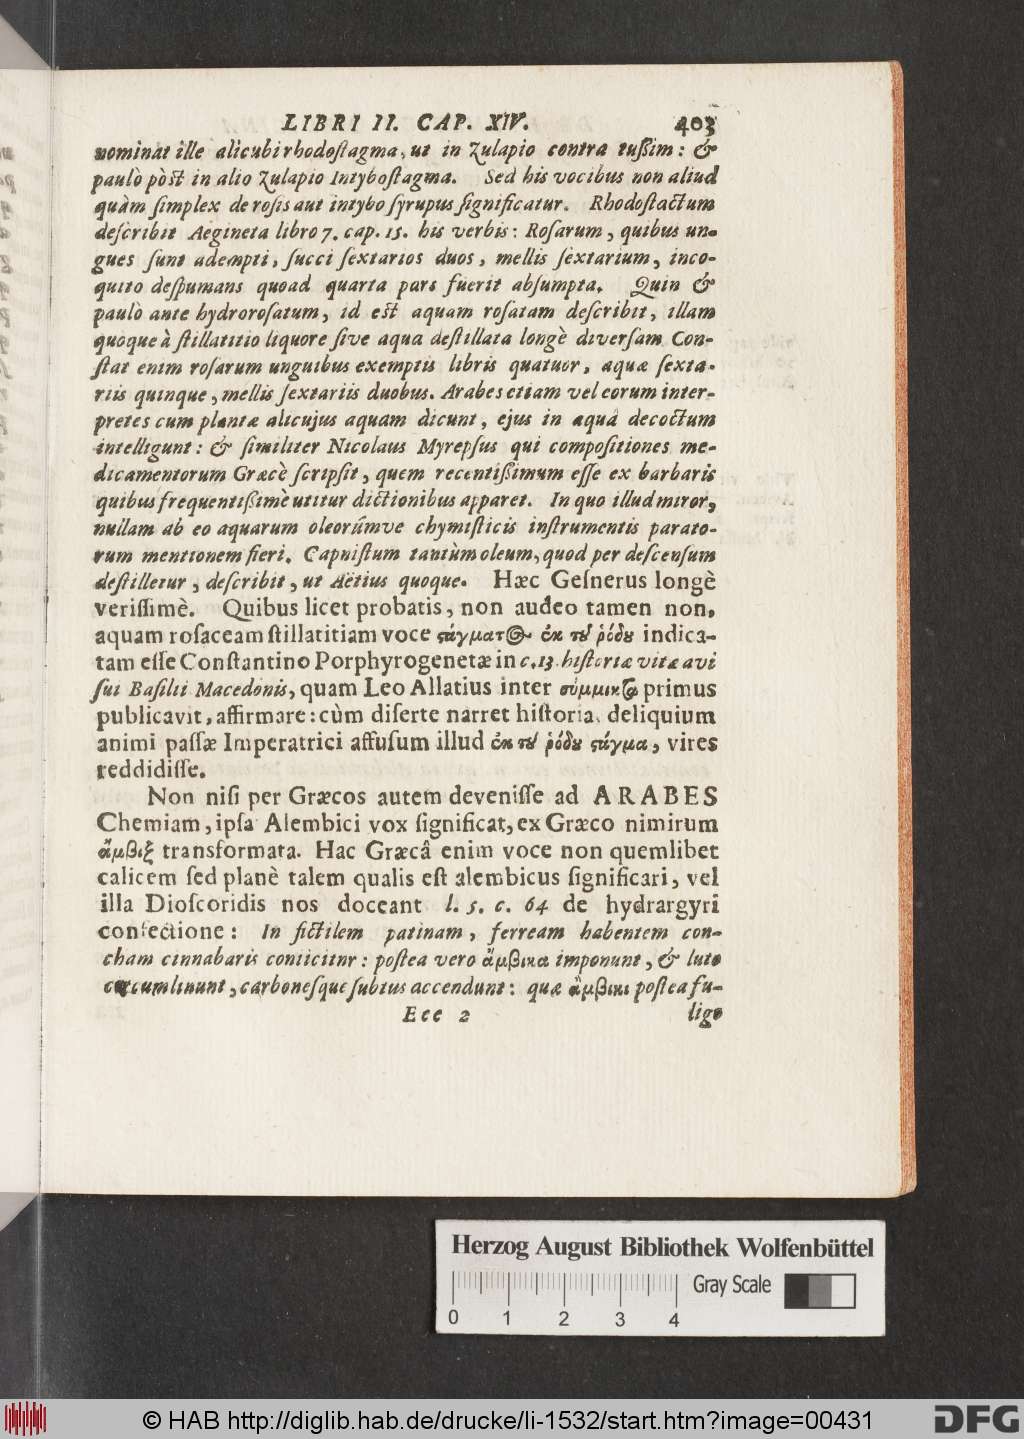 LIBRI II. CAP. XIV. 403
nominat ille alicubi rhodoſtagma, ut in Zulapio contra tußim: &
paulò pòſt in alio Zulapio Intyboſtagma. Sed his vocibus non aliud
quàm ſimplex de roſis aut intybo ſyrupus ſignificatur. Rhodoſtactum
deſcribit Aegineta libro 7. cap. 15. his verbis: Roſarum, quibus un-
gues ſunt adempti, ſucci ſextarios duos, mellis ſextarium, inco-
quito deſpumans quoad quarta pars fuerit abſumpta. Quin &
paulò ante hydroroſatum, id eſt aquam roſatam deſcribit, illam
quoque à ſtillatitio liquore ſive aqua deſtillata longè diverſam Con-
ſtat enim roſarum unguibus exemptis libris quatuor, aquæ ſexta-
riis quinque, mellis ſextariis duobus. Arabes etiam vel eorum inter-
pretes cum plantæ alicujus aquam dicunt, ejus in aquâ decoctum
intelligunt: & ſimiliter Nicolaus Myrepſus qui compoſitiones me-
dicamentorum Græcè ſcripſit, quem recentißimum eſſe ex barbaris
quibus frequentißimè utitur dictionibus apparet. In quo illud miror,
nullam ab eo aquarum oleorúmve chymiſticis inſtrumentis parato-
rum mentionem fieri. Capniſtum tantùm oleum, quod per deſcenſum
deſtilletur, deſcribit, ut Aëtius quoque. Hæc Geſnerus longè
veriſſimè. Quibus licet probatis, non audeo tamen non,
aquam roſaceam ſtillatitiam voce ϛάγματ(Ο)- ἐκ τȣ῀ ῥόδȣ indica-
tam eſſe Conſtantino Porphyrogenetæ in c. 13. hiſtoriæ vitæ avi
ſui Baſilii Macedonis, quam Leo Allatius inter σύμμικτ(Ο) primus
publicavit, affirmare: cùm diſerte narret hiſtoria, deliquium
animi paſſæ Imperatrici affuſum illud ἐκ τȣ῀ ῥόδȣ ϛάγμα, vires
reddidiſſe.
Non niſi per Græcos autem deveniſſe ad ARABES
Chemiam, ipſa Alembici vox ſignificat, ex Græco nimirum
ἄμβιξ transformata. Hac Græcâ enim voce non quemlibet
calicem ſed planè talem qualis eſt alembicus ſignificari, vel
illa Dioſcoridis nos doceant l. 5. c. 64 de hydrargyri
confectione: In fictilem patinam, ferream habentem con-
cham cinnabaris coniicitnr: poſtea vero ἄμβικα imponunt, & luto
circumlinunt, carbonesque ſubtus accendunt: quæ ἄμβικι poſtea fu-
Eee 2 ligo
Herzog August Bibliothek Wolfenbüttel
Gray Scale
0 1 2 3 4
© HAB http://diglib.hab.de/drucke/li-1532/start.htm?image=00431
DFG